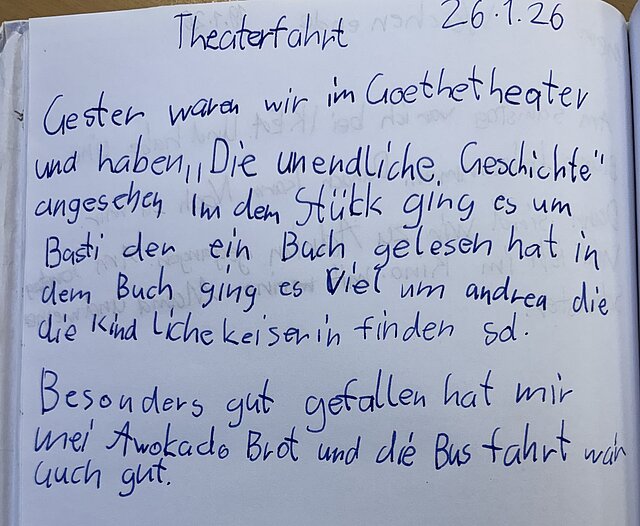 Theaterfahrt 26.1.26
Gester waren wir im Goethetheater
und haben „Die unendliche Geschichte"
angesehen Im dem Stükk ging es um
Basti der ein Buch gelesen hat in
dem Buch ging es Viel um andrea die
die kind liche keiserin finden sol.
Besonders gut gefallen hat mir
mei Awokado Brot und die Bus fahrt war
auch gut.